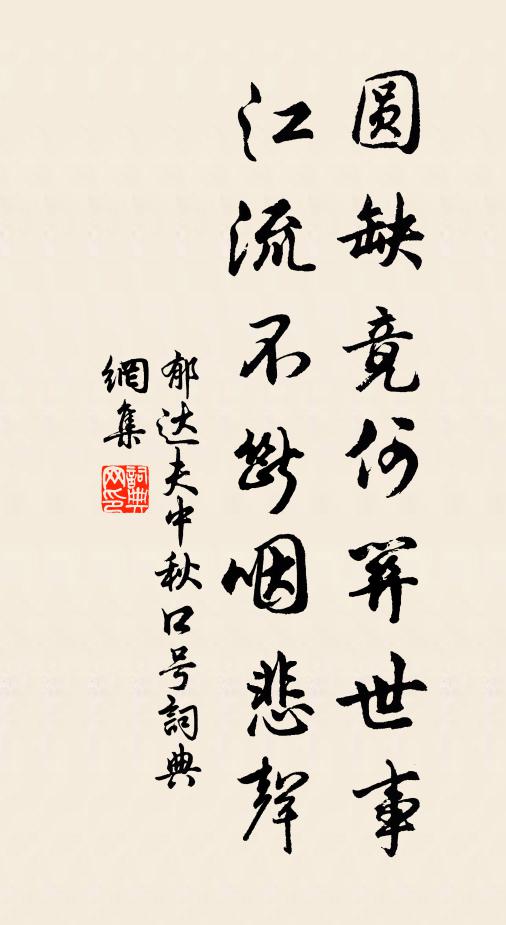 圆缺竟何关世事
江流不斷咽悲聲
郁达夫中秋口号詞典
網集
詞典
网印